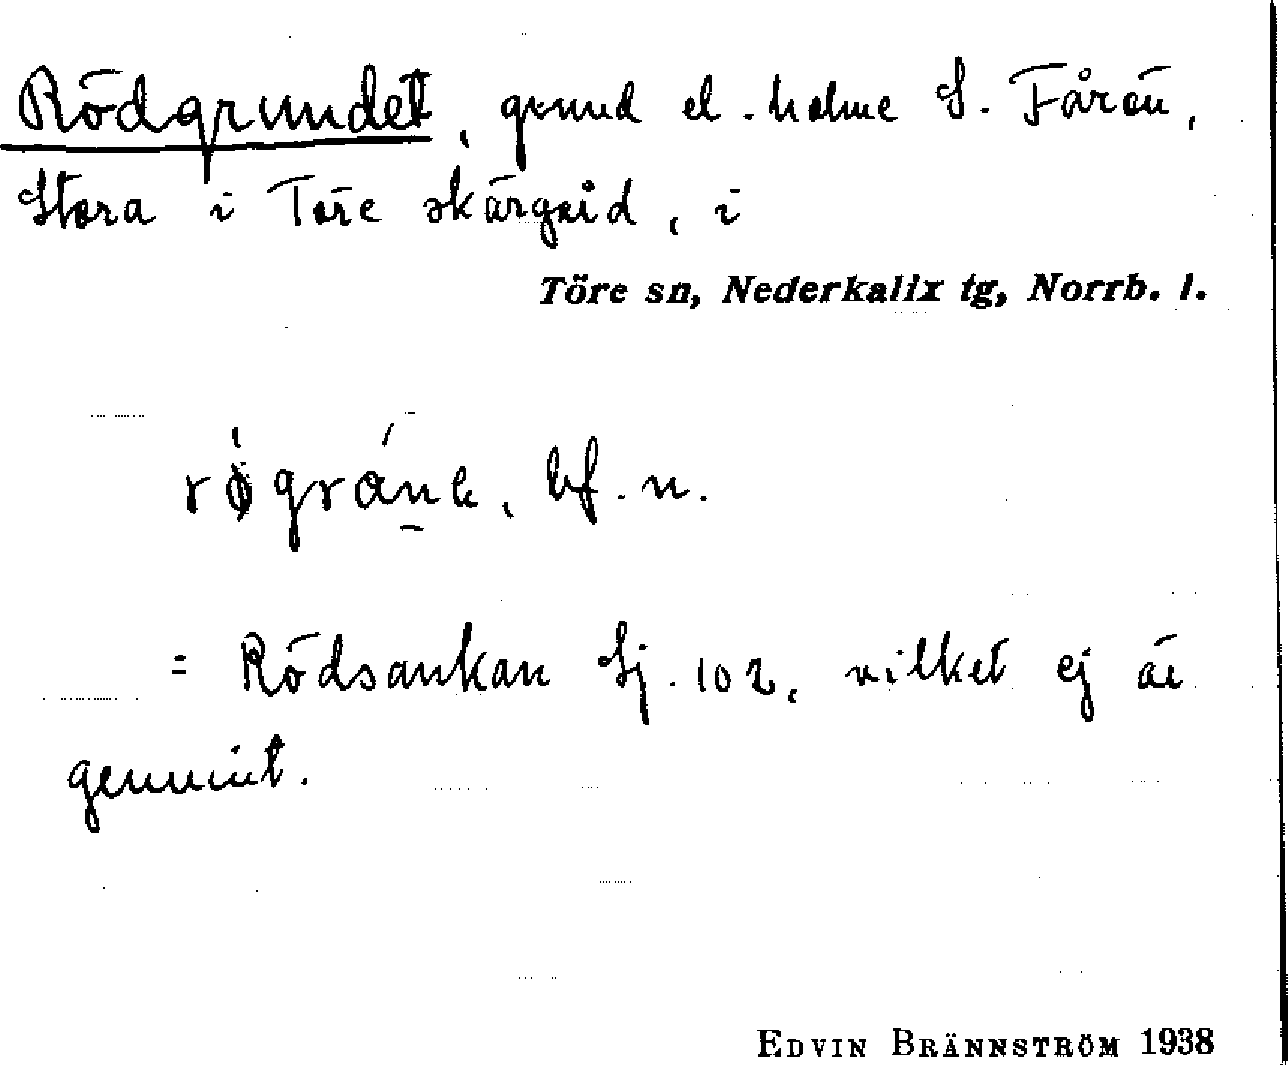 Rödgrundet, grund el. holme S. Fårön,
Stora i Töre skärgård, i
Töre sn, Nederkalix tg, Norrb. l.
bf. n.
= Rödsankan Sj. 102, vilket ej är
genuint.
EDVIN BRÄNNSTRÖM 1938